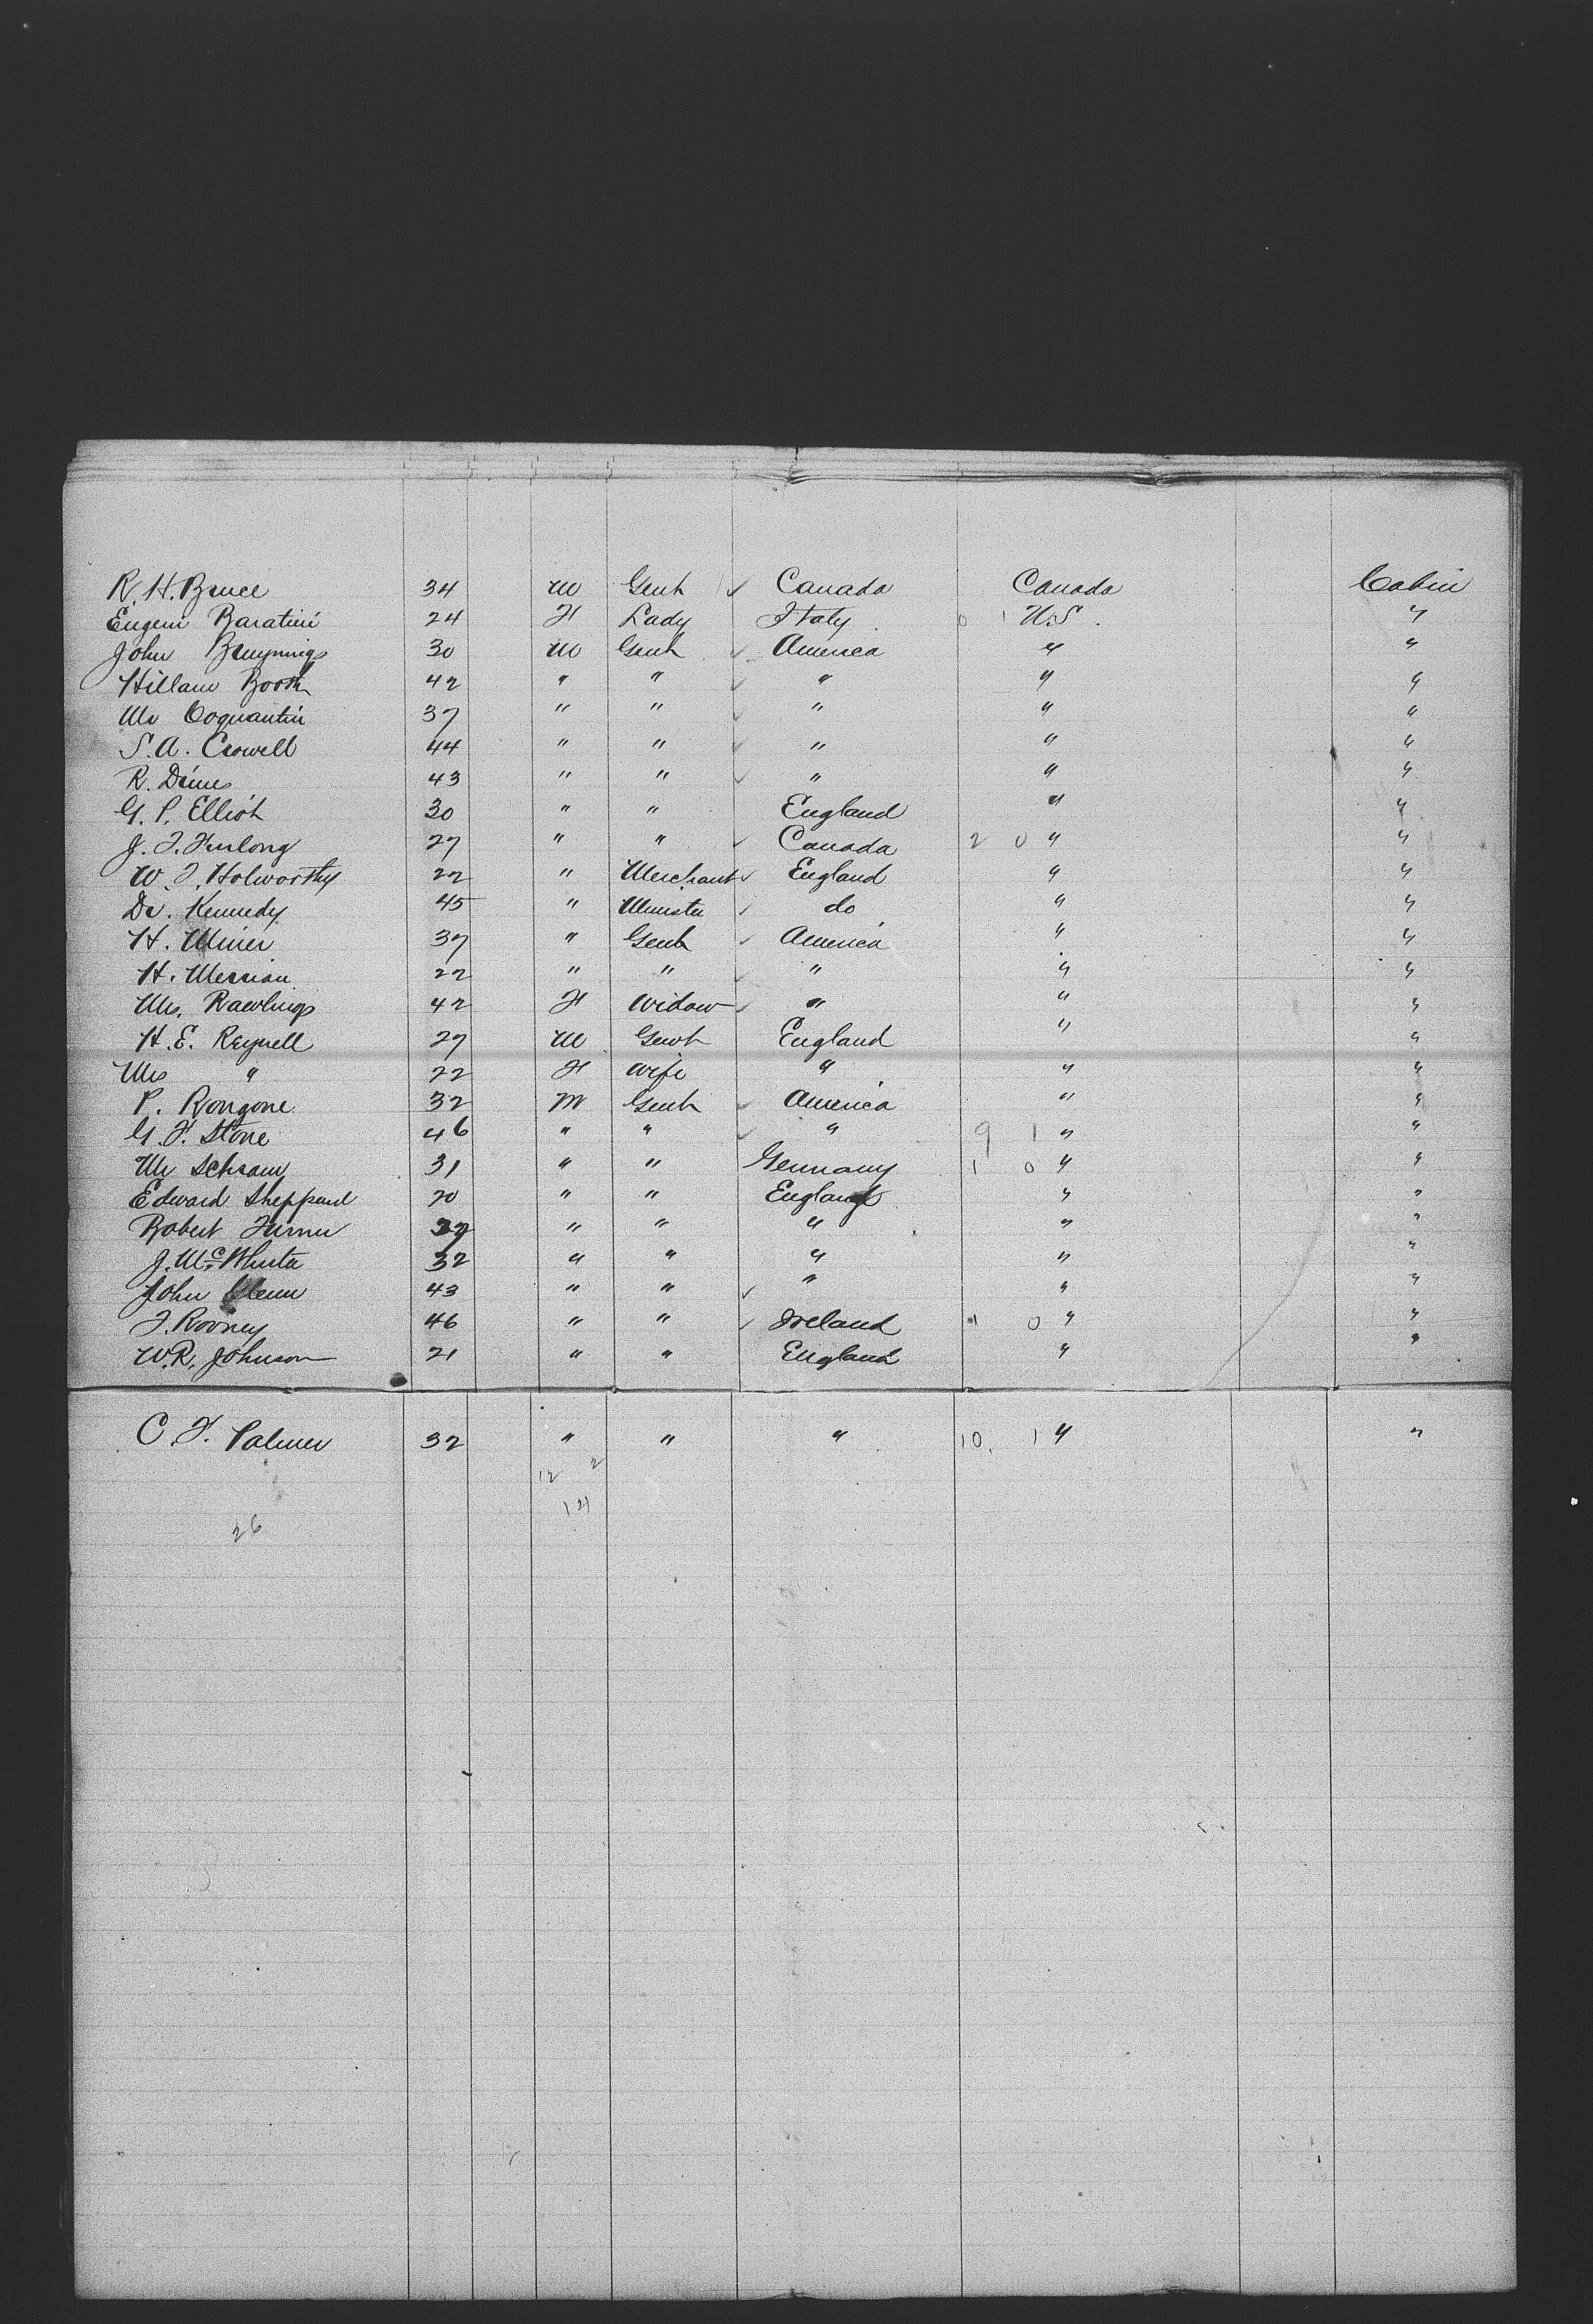 R. H. Bruce 34 M Gent ✓ Canada Canada Cabin
Eugeni Baratini 24 F Lady Italy 0 1 U.S. "
John Bruynnings 30 M Gent ✓ America " "
Hillam Booth 42 " " ✓ " " "
Mr Coquantin 37 " " ✓ " " "
S. A. Crowell 44 " " ✓ " " "
R. Dimes 43 " " ✓ " " "
G. P. Elliot 30 " " England " "
J. J. Furlong 27 " " ✓ Canada 2 0 " "
W. J. Holworthy 22 " Merchant ✓ England " "
Dr. Kennedy 45 " Minister ✓ do " "
H. Miner 37 " Gent ✓ America " "
H. Merrian 22 " " ✓ " " "
Mrs. Rawlings 42 F Widow ✓ " " "
H. E. Reynell 27 M Gent England " "
Mrs " 22 F Wife " " "
P. Rongone 32 M Gent ✓ America " "
G. F. Stone 46 " " ✓ " 9 1 " "
Mr Schram 31 " " Germany 1 0 " "
Edward Sheppard 20 " " England " "
Robert Turner " " " " "
J. McWhirter 32 " " " " "
John Glenn 43 " " ✓ " " "
J. Rooney 46 " " ✓ Ireland 1 0 " "
W. R. Johnson 21 " " England " "
C. F. Palmer 32 " " " 10. 1 " "
12 2
26